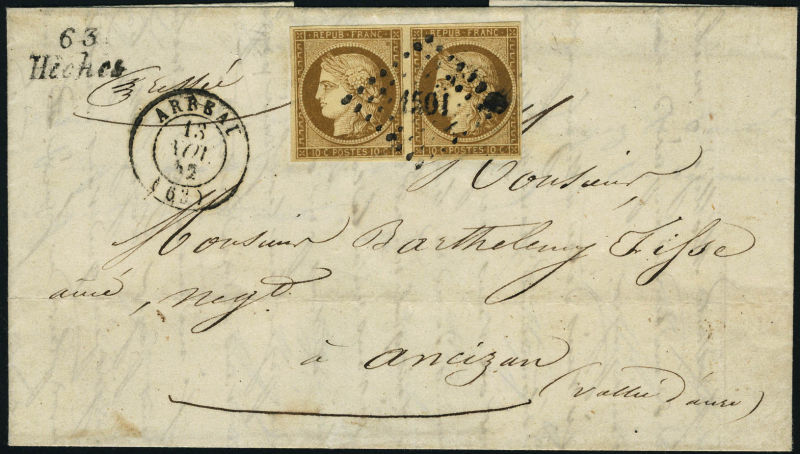 63
Hèches
ARREAU
13
AOU
52
(63)
REPUB FRANC
10 C POSTES 10 C
REPUB FRANC
10 C POSTES 10 C
1501
Monsieur
Monsieur Barthelemy Fisse
ainé, negt.
à Ancizan
(vallée d'aure)